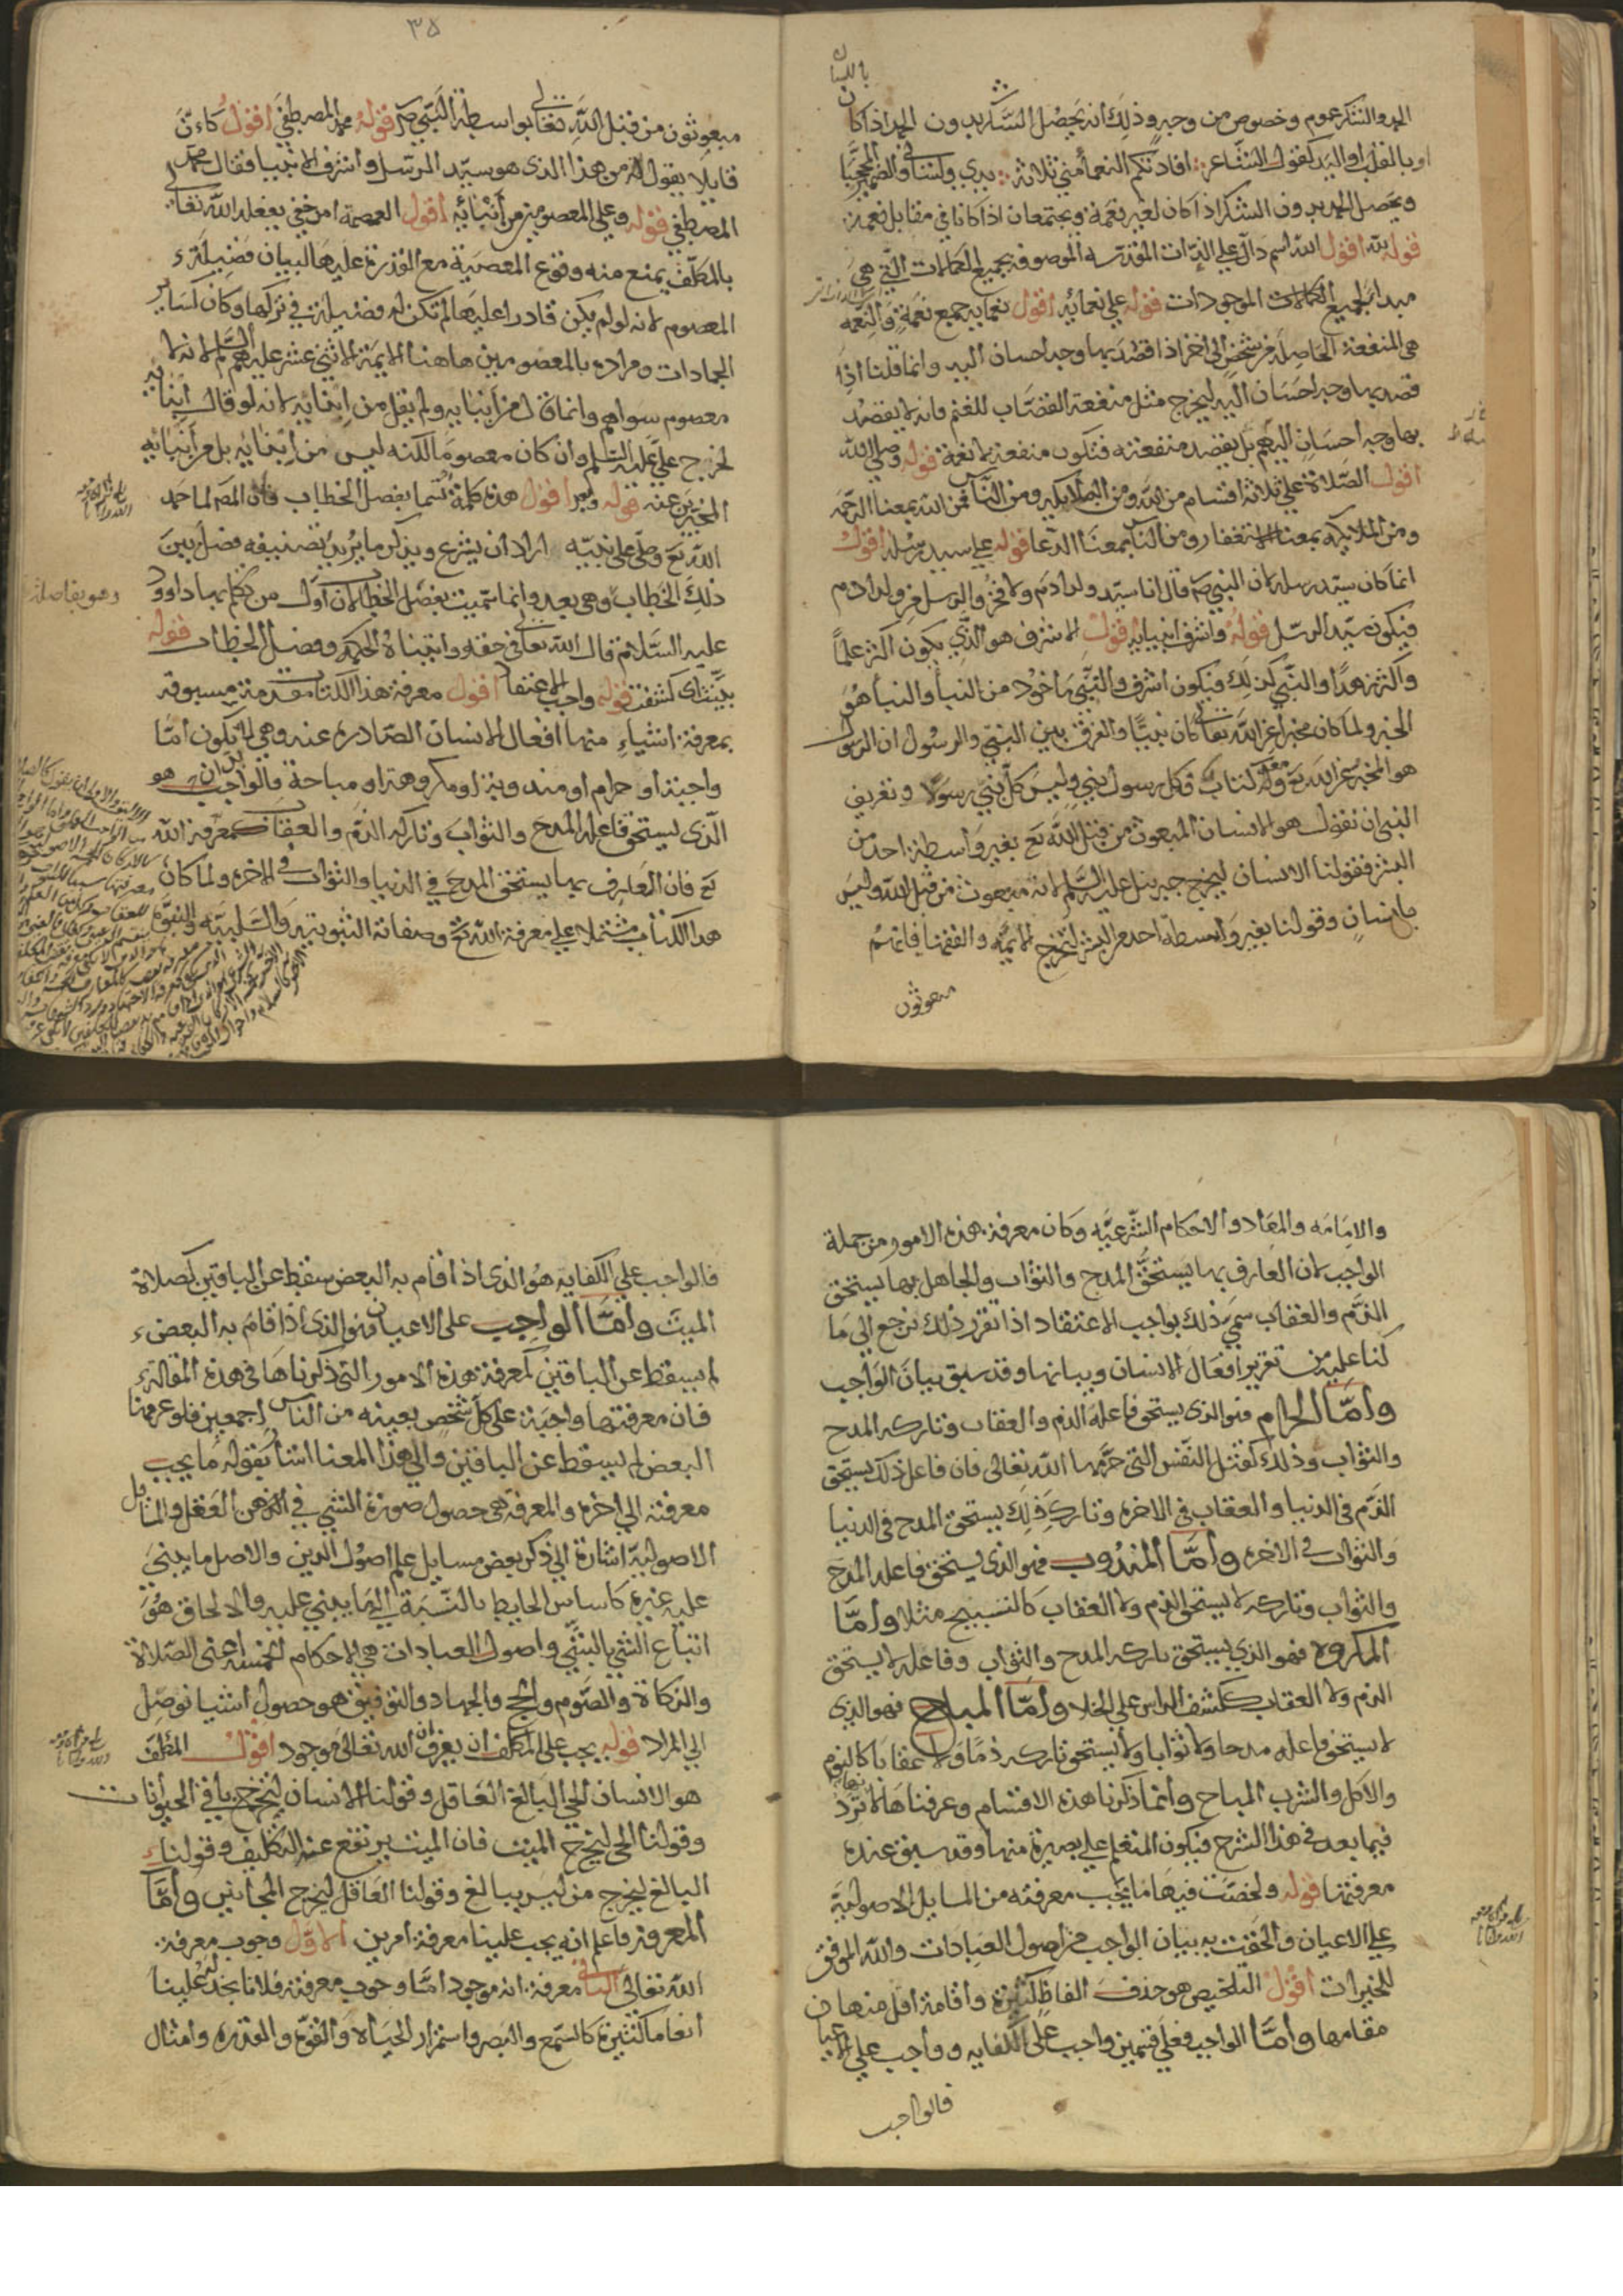 ٣٥
باللسان
الحمد والشكر عموم وخصوص من وجه وذلك انه يحصل الشكر بدون الحمد اذا كان
او بالقلب او اليد كقول الشاعر افادتكم النعما مني ثلاثة يدي ولساني والضمير المحجبا
ويحصل الحمد بدون الشكر اذا كان لغير نعمة ويجتمعان اذا كانا في مقابل نعمة
قوله لله اقول الله اسم دال علي الذات المقدسه الموصوفه بجميع الكمالات التي هي
مبدا لجميع الكمالات الموجودات قوله علي نعمائه اقول نعمايه جميع نعمة والنعمه
هي المنفعة الحاصلة من شخص الي اخر اذا قصد بها وجه احسان اليه وانما قلنا اذا
قصد بها وجه احسان اليه ليخرج مثل منفعة القصاب للغنم فانه لا يقصد
بها وجه احسان اليهم بل يقصد منفعته فتكون منفعة لا نعمة قوله وصلي الله
اقول الصلاة علي ثلاثة اقسام من الله ومن الملايكه ومن الناس فمن الله بمعنا الرحمه
ومن الملايكه بمعنا الاستغفار ومن الناس بمعنا الدعا قوله علي سيد رسله اقول
انما كان سيد رسله لان النبي صم قال انا سيد ولد ادم ولا فخر والرسل من ولد ادم
فيكون سيد الرسل قوله واشرف انبيائه اقول الاشرف هو الذي يكون اكثر علما
واكثر زهدا والنبي كذلك فيكون اشرف والنبي ماخوذ من النبأ والنبأ هو
الخبر ولما كان مخبرا عن الله تعالي كان نبيا والفرق بين النبي والرسول ان الرسول
هو المخبر عن الله تع ومعه كتاب فكل رسول نبي وليس كل نبي رسولا وتعريف
النبي ان نقول هو الانسان المبعوث من قبل الله تع بغير واسطة احد من
البشر فقولنا الانسان ليخرج جبريل عليه السلم لانه مبعوث من قبل الله وليس
بانسان وقولنا بغير واسطة احد من البشر لتخرج الائمه والفقها فانهم
مبعوثون
مبعوثون من قبل الله تعالي بواسطة النبي صم قوله محمد المصطفي اقول كان
قايلا يقول له من هذا الذي هو سيد المرسل واشرف الانبيا فقال محمد
المصطفي قوله وعلي المعصومين من أبنائه اقول العصمة امر خفي يفعله الله تعالي
بالمكلف يمنع منه وقوع المعصية مع القدرة عليها لبيان فضيلة
المعصوم لانه لو لم يكن قادرا عليها لم تكن له فضيلة في تركها وكان كساير
الجمادات ومراده بالمعصومين هاهنا الايمة الاثني عشر عليهم السلم لانه لا
معصوم سواهم وانما قال من أبنايه ولم يقل من ابنائه لانه لو قال ابنائه
لخرج علي عليه السلم وان كان معصوما لكنه ليس من ابنائه بل من أنبائه
المخبرين عنه قوله وبعد اقول هذه كلمة تسما بفصل الخطاب فان المص لما حمد
الله تع وصلي علي نبيه اراد ان يشرع ويذكر ما يريد تصنيفه فصل بين
ذلك الخطاب وهي بعد وانما سميت بفصل الخطاب لان اول من تكلم بها داوود
عليه السلام قال الله تعالي في حقه واتيناه الحكمة وفصل الخطاب قوله
بينت اي كشفت قوله واجب الاعتقاد اقول معرفة هذا الكتاب مقدمة مسبوقه
بمعرفة اشياء منها افعال الانسان الصادره عنه وهي اما يكون اما
واجبة او حرام او مندوبة او مكروهة او مباحة فالواجب هو
الذي يستحق فاعله المدح والثواب وتاركه الذم والعقاب كمعرفة الله
تع فان العارف بها يستحق المدح في الدنيا والثواب في الاخره ولما كان
هذا الكتاب مشتملا علي معرفة الله تع وصفاته الثبوتيه والسلبيه والنبوة
والامامه والمعاد والاحكام الشرعيه وكان معرفة هذه الامور من جملة
الواجب لان العارف بها يستحق المدح والثواب والجاهل بها يستحق
الذم والعقاب سمي ذلك بواجب الاعتقاد اذا تقرر ذلك نرجع الي ما
كنا عليه من تقرير افعال الانسان وبيانها وقد سبق بيان الواجب
واما الحرام فهو الذي يستحق فاعله الذم والعقاب وتاركه المدح
والثواب وذلك كقتل النفس التي حرمها الله تعالي فان فاعل ذلك يستحق
الذم في الدنيا والعقاب في الاخره وتارك ذلك يستحق المدح في الدنيا
والثواب في الاخره واما المندوب فهو الذي يستحق فاعله المدح
والثواب وتاركه لا يستحق الذم ولا العقاب كالتسبيح مثلا واما
المكروه فهو الذي يستحق تاركه المدح والثواب وفاعله لا يستحق
الذم ولا العقاب ككشف الراس علي الخلا واما المباح فهو الذي
لا يستحق فاعله مدحا ولا ثوابا ولا يستحق تاركه ذما ولا عقابا كالنوم
والاكل والشرب المباح وانما ذكرنا هذه الاقسام وعرفناها لانها ترد
فيما بعد في هذا الشرح فيكون المتعلم علي بصيرة منها وقد سبق عنده
معرفتها قوله ولخصت فيها ما يجب معرفته من المسايل الاصولية
علي الاعيان والحقت به بيان الواجب من اصول العبادات والله الموفق
للخيرات اقول التلخيص هو حذف الفاظ كثيرة واقامة اقل منها
مقامها واما الواجب فعلي قسمين واجب علي الكفايه وواجب علي الاعيان
فالواجب
فالواجب علي الكفايه هو الذي اذا قام به البعض سقط عن الباقين كصلاة
الميت واما الواجب علي الاعيان فهو الذي اذا قام به البعض
لم يسقط عن الباقين كمعرفة هذه الامور التي ذكرناها في هذه المقالة
فان معرفتها واجبة علي كل شخص بعينه من الناس اجمعين فلو عرفها
البعض لم يسقط عن الباقين والي هذا المعنا اشار بقوله ما يجب
معرفته الي اخره والمعرفة هي حصول صورة الشي في الذهن العقل والمسايل
الاصولية اشارة الي ذكر بعض مسايل علم اصول الدين والاصل ما يبني
عليه غيره كاساس الحايط بالنسبة الي ما يبني عليه والالحاق هو
اتباع الشي بالشي واصول العبادات هي الاحكام الخمسه اعني الصلاة
والزكاة والصوم والحج والجهاد والتوفيق هو حصول اشيا توصل
الي المراد قوله يجب علي المكلف ان يعرف ان الله تعالي موجود اقول المكلف
هو الانسان الحي البالغ العاقل وقولنا الانسان ليخرج باقي الحيوانات
وقولنا الحي ليخرج الميت فان الميت يرتفع عنه التكليف وقولنا
البالغ ليخرج من ليس ببالغ وقولنا العاقل ليخرج المجانين واما
المعرفة فاعلم انه يجب علينا معرفة امرين الاول وجوب معرفة
الله تعالي الثاني معرفة انه موجود اما وجوب معرفته فلانا نجد له علينا
انعاما كثيرة كالسمع والبصر واستمرار الحياة والقوة والقدرة وامثال